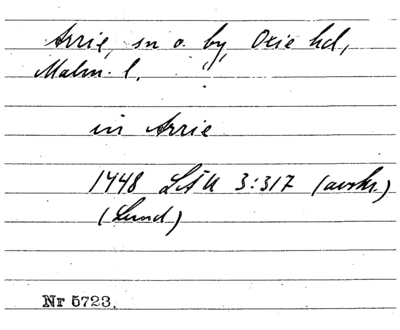 Arrie, sn o. by, Oxie hd,
Malm. l.
in Arrie
1448 LÄU 3:317 (avskr.)
(Lund)
Nr 5723.